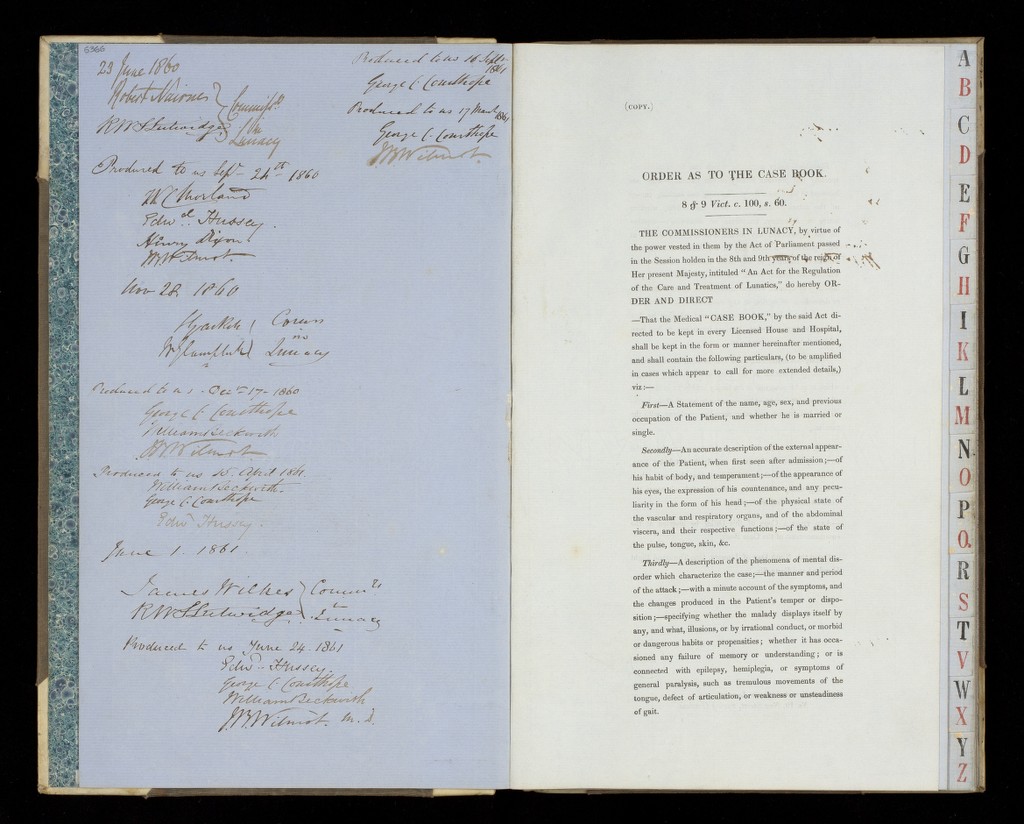 6366
23 June 1860
Robert Nairne
Commissrs
RWS Lutwidge
in
Lunacy
Produced to us Sepr 24th 1860
Morland
Edwd. Hussey.
Henry Dixon
JBWilmot.
Nov 28 1860
Comrs
in
Lunacy
Produced to us Decr 17 1860
George C Courthope
William Beckwith
JBWilmot
Produced to us 15 April 1861.
William Beckwith.
George C. Courthope
Edwd Hussey.
June 1. 1861
James Wilkes
Commrs
RWS Lutwidge
in Lunacy
Produced to us June 24. 1861
Edwd. Hussey.
George C Courthope
William Beckwith
JBWilmot. M.D.
Produced to us 16 Septr
1861
George C Courthope
Produced to us 17
George C. Courthope
JBWilmot.
(COPY.)
ORDER AS TO THE CASE BOOK.
8 & 9 Vict. c. 100, s. 60.
THE COMMISSIONERS IN LUNACY, by virtue of
the power vested in them by the Act of Parliament passed
in the Session holden in the 8th and 9th years of the reign of
Her present Majesty, intituled "An Act for the Regulation
of the Care and Treatment of Lunatics," do hereby OR-
DER AND DIRECT
—That the Medical "CASE BOOK," by the said Act di-
rected to be kept in every Licensed House and Hospital,
shall be kept in the form or manner hereinafter mentioned,
and shall contain the following particulars, (to be amplified
in cases which appear to call for more extended details,)
viz:—
First—A Statement of the name, age, sex, and previous
occupation of the Patient, and whether he is married or
single.
Secondly—An accurate description of the external appear-
ance of the Patient, when first seen after admission;—of
his habit of body, and temperament;—of the appearance of
his eyes, the expression of his countenance, and any pecu-
liarity in the form of his head;—of the physical state of
the vascular and respiratory organs, and of the abdominal
viscera, and their respective functions;—of the state of
the pulse, tongue, skin, &c.
Thirdly—A description of the phenomena of mental dis-
order which characterize the case;—the manner and period
of the attack;—with a minute account of the symptoms, and
the changes produced in the Patient's temper or dispo-
sition;—specifying whether the malady displays itself by
any, and what, illusions, or by irrational conduct, or morbid
or dangerous habits or propensities; whether it has occa-
sioned any failure of memory or understanding; or is
connected with epilepsy, hemiplegia, or symptoms of
general paralysis, such as tremulous movements of the
tongue, defect of articulation, or weakness or unsteadiness
of gait.
A
B
C
D
E
F
G
H
I
K
L
M
N
O
P
Q.
R
S
T
V
W
X
Y
Z